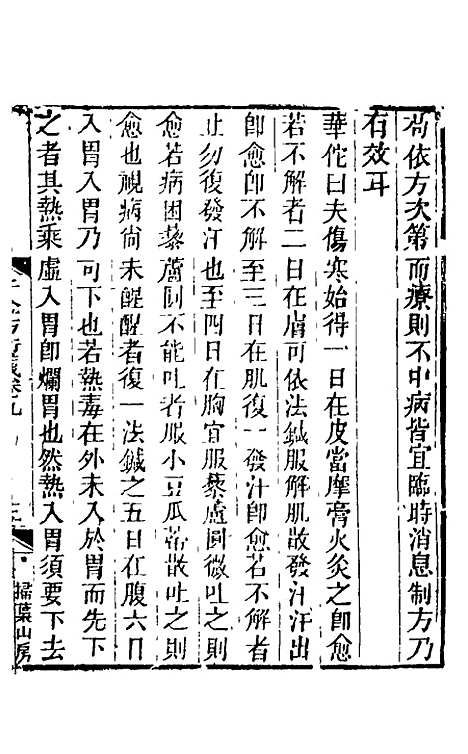 苟依方次第而療則不中病皆宜臨時消息制方乃
有效耳
華佗曰夫傷寒始得一日在皮當摩膏火灸之卽愈
若不解者二日在膚可依法鍼服解肌散發汗汗出
卽愈卽不解至三日在肌復一發汗卽愈若不解者
止勿復發汗也至四日在胸宜服藜蘆圓微吐之則
愈若病困藜蘆圓不能吐者服小豆瓜蒂散吐之則
愈也視病尙未醒醒者復一法鍼之五日在腹六日
入胃入胃乃可下也若熱毒在外未入於胃而先下
之者其熱乘虛入胃卽爛胃也然熱入胃須要下去
千金方衍義卷九
掃葉山房